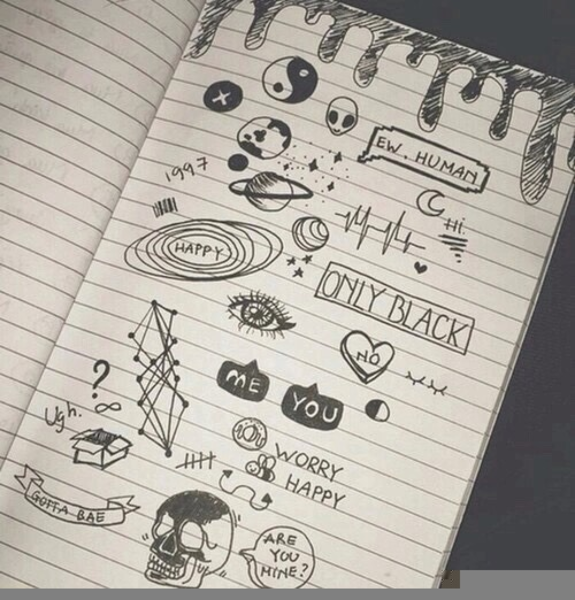 EW, HUMAN
1997
Hi.
HAPPY
ONLY BLACK
NO
ME
YOU
?
Ugh.
WORRY
HAPPY
GOTTA BAE
ARE
YOU
MINE?